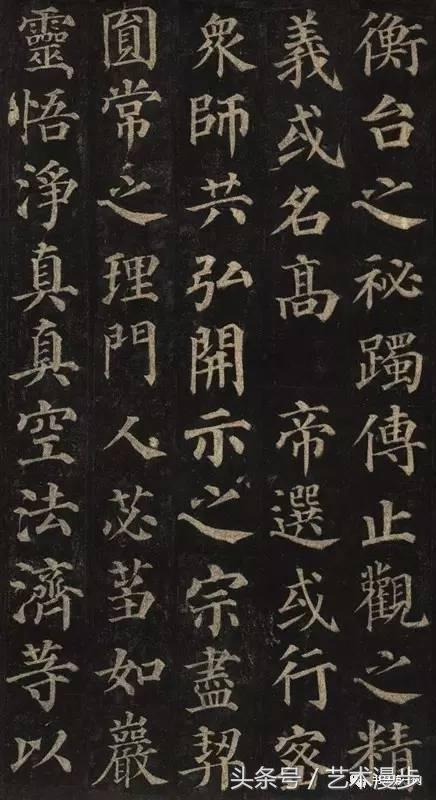 衡台之祕躅傳止觀之精
義或名高 帝選或行密
衆師共弘開示之宗盡契
圓常之理門人苾蒭如巖
靈悟淨真真空法濟等以
头条号／艺术漫步